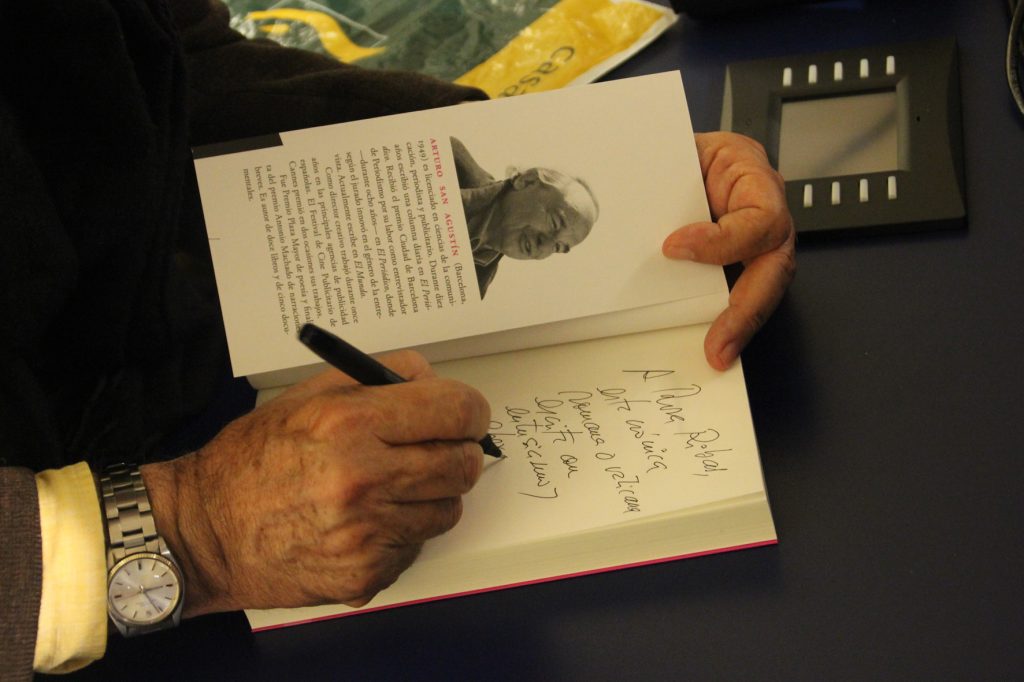 casa
ARTURO SAN AGUSTÍN (Barcelona,
1949) es licenciado en ciencias de la comuni-
cación, periodista y publicitario. Durante diez
años escribió una columna diaria en El Perió-
dico. Recibió el premio Ciudad de Barcelona
de Periodismo por su labor como entrevistador
—durante ocho años— en El Periódico, donde
según el jurado innovó en el género de la entre-
vista. Actualmente escribe en El Mundo.
Como director creativo trabajó durante once
años en las principales agencias de publicidad
españolas. El Festival de Cine Publicitario de
Cannes premió en dos ocasiones sus trabajos.
Fue Premio Plaza Mayor de poesía y final
ta del premio Antonio Machado de narraciones
breves. Es autor de doce libros y de cinco docu-
mentales.
A
esta crónica
romana o vaticana
escrita con
entusiasmo y